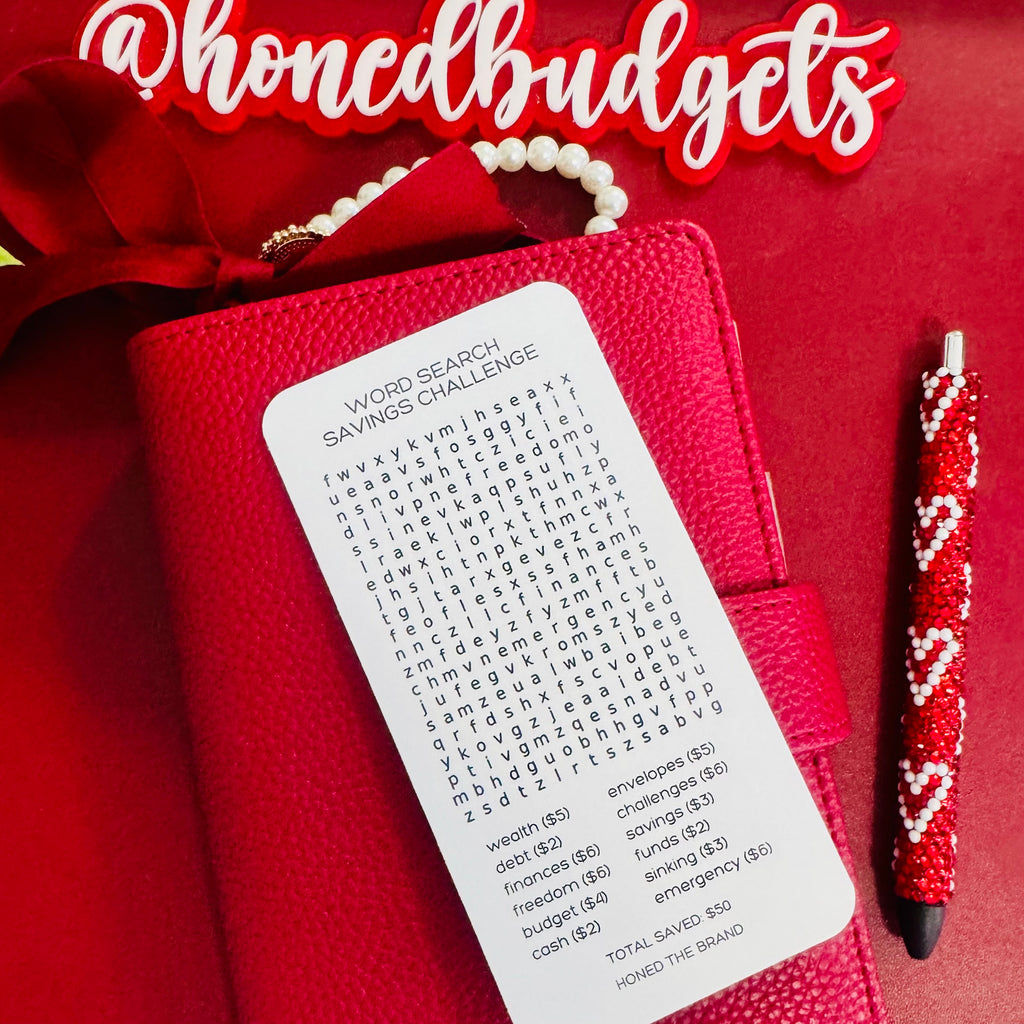 @honedbudgets
WORD SEARCH
SAVINGS CHALLENGE
f w v x y k v m j h s e a x x
u e a a v s f o s g g y f i f
n s n o r w h t c z i c i e i
d l i v p n e f r e e d o m o
s s i n e v k a q p s u f l y
i r a e k j w p l s h u h z p
e d w x c i o r x t f n n x a
j h s i h t n p k t h m c w x
t g j t a r x g e v e z c f r
f e o f l e s x s s f h a m h
n n c z l j c f i n a n c e s
z m f d e y z f y z m f f t b
c h m v n e m e r g e n c y u
j u f e g v k r o m s z y e d
s a m z e u a l w b a i b e g
q r f d s h x f s c v o p u e
y k o v g z j e a a i d e b t
p t i v g m z q e s n a d v u
m b h d g u o b h h g v f p p
z s d t z l r t s z s a b v g
wealth ($5)
debt ($2)
finances ($6)
freedom ($6)
budget ($4)
cash ($2)
envelopes ($5)
challenges ($6)
savings ($3)
funds ($2)
sinking ($3)
emergency ($6)
TOTAL SAVED: $50
HONED THE BRAND